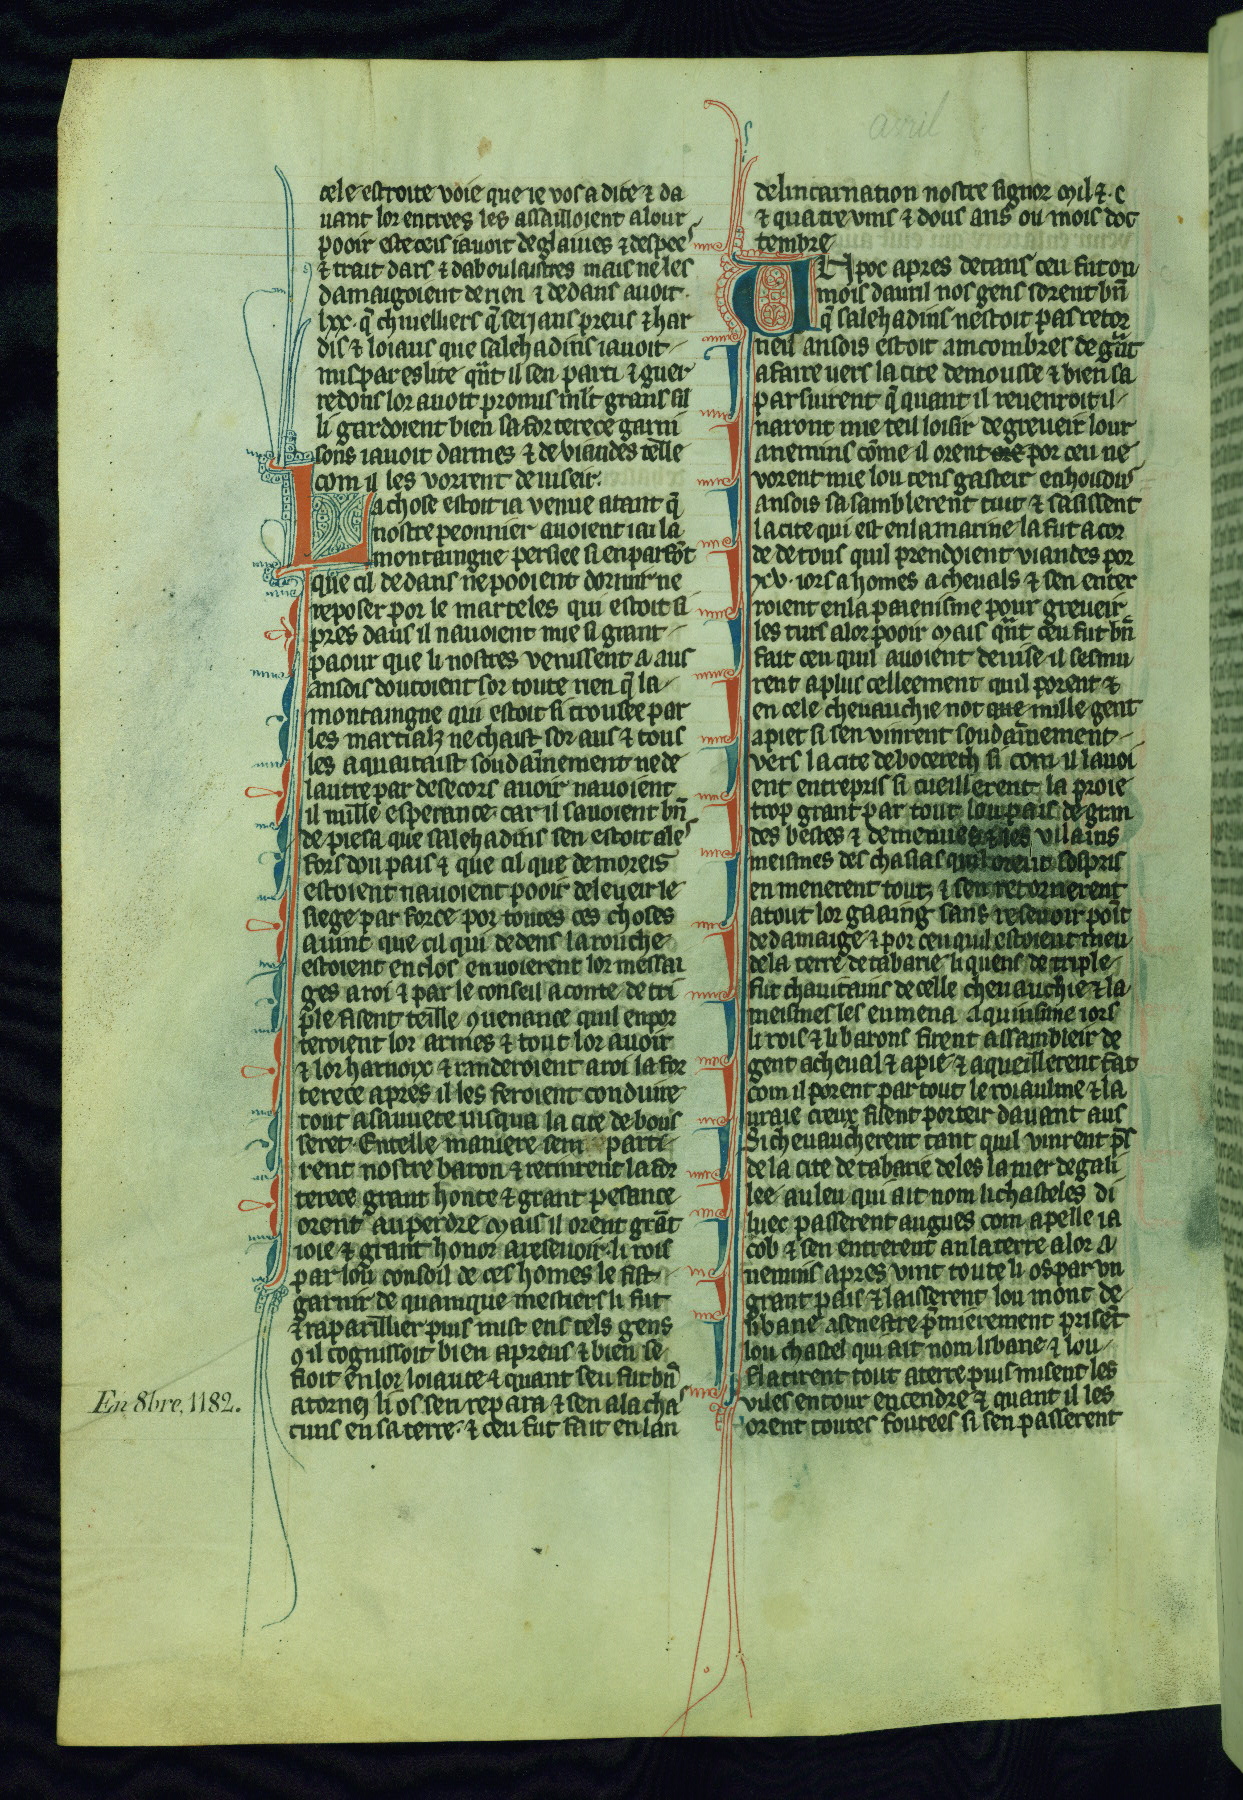 avril
cele estroite voie que ie vos a dite ⁊ da
uant lor entrees les assailloient a lour
pooir este teis iauoit de glaiues ⁊ despees
⁊ trait dars ⁊ daboulaistres mais ne les
damaigoient de rien ⁊ dedans auoit
lxx. q̃ chiuelliers q̃ serians preus ⁊ har
dis ⁊ loiaus que salehadins iauoit
mis par eslite q̃nt il sen parti ⁊ guer
redons lor auoit promis ml̃t grans sil
li gardoient bien sa forterece garni
sons iauoit darmes ⁊ de viandes telle
com il les vorrent deuiseir.
La chose estoit ia venue atant q̃
nostre peonnier auoient iai la
montaingne persiee si en parfõt
que cil dedans ne pooient dormir ne
reposer por le marteles qui estoit si
pres daus il nauoient mie si grant
paour que li nostres venissent a aus
ansdis doutoient sor toute rien q̃ la
montaingne qui estoit si trousee par
les martialz ne chaist sor aus ⁊ tous
les aquaitaist soudaĩnement ne de
lautre par de secors auoir nauoient
il nulle esperance. car il sauoient bñ
de piesa que salehadins sen estoit ales
fors dou pais ⁊ que cil que demoreis
estoient nauoient pooir de leueir le
siege par force por toutes ces choses
auint que cil qui dedens la rouche
estoient enclos enuoierent lor messai
ges a roi ⁊ par le conseil a conte de tri
ple fisent teille ꝯuenance quil enpor
teroient lor armes ⁊ tout lor auoir
⁊ lor harnoix ⁊ randeroient a roi la for
terece apres il les feroient conduire
tout a sauuete iusqua la cite de bous
seret. En telle maniere sem parti
rent nostre baron ⁊ retinrent la for
terece grant honte ⁊ grant pesance
orent au perdre mais il orent grãt
ioie ⁊ grant honor a reseuoir. li rois
par lou consoil de ces homes le fist
garnir de quanique mestiers li fut
⁊ raparillier puis mist ens tels gens
ꝯ il cognissoit bien a preus ⁊ bien se
fioit en lor loiaute ⁊ quant seu fut bñ
atorney li os sen repara ⁊ sen ala cha
cuns en sa terre. ⁊ ceu fut fait en lan
En 8bre, 1182.
de lincarnation nostre signor mil ⁊. c
⁊ quatre vins ⁊ dous ans ou mois doc
tembre
Un poc apres de tans ceu fut on
mois dauril nos gens sorent bñ
q̃ salehadins nestoit pas retor
neil ansdis estoit amcombres de g̃nt
afaire uers la cite de mousse ⁊ bien sa
parsuirent q̃ quant il reuenroit il
naront mie teil loisir de greueir lour
anemins cõme il orent por ceu ne
vorent mie lou tens gasteir en houdiis
ansdis sa samblerent tuit ⁊ sasissent
la cite qui est en la marine la fut acor
de de tous quil prendoient viandes por
xv. iors a homes a cheuals ⁊ sen enter
roient en la paienisme pour greueir
les turs a lor pooir mais q̃nt ceu fut bñ
fait ceu quil auoient deuise il sesmu
rent a plus celleement quil porent ⁊
en cele cheuauchie not que mille gent
a piet si sen vinrent soudaĩnement
vers la cite de bocerech si com il lauoi
ent entrepris si cueillerent la proie
trop grant par tout lou pais de gran
des bestes ⁊ de menues ⁊ les vilains
meismes des chasias quil orent sospris
en menerent touz ⁊ sen retornerent
a tout lor gaaing sans reseuoir poĩt
de damaige ⁊ por ceu quil estoient meu
de la terre de tabarie li quens de triple
fut chauitains de celle cheuauchie ⁊ la
meismes les enmena aquinsime iors
li rois ⁊ li barons firent assambleir de
gent a cheual ⁊ a pie ⁊ aqueillerent tat
com il porent par tout le roiaulme ⁊ la
uraie creux fisent porteir dauant aus
Si cheuaucherent tant quil vinrent p̃s
de la cite de tabarie deles la mer de gali
lee au leu qui ait nom li chasteles di
luec passerent augues com apelle ia
cob ⁊ sen entrerent an la terre a lor a
nemins apres vint toute li os par vn
grant pais ⁊ laisserent lou mont de
libane a senestre p̃mierement prisẽt
lou chastel qui ait nom libane ⁊ lou
flatirent tout a terre puis misent les
viles entour en cendre ⁊ quant il les
orent toutes foutees si sen passerent